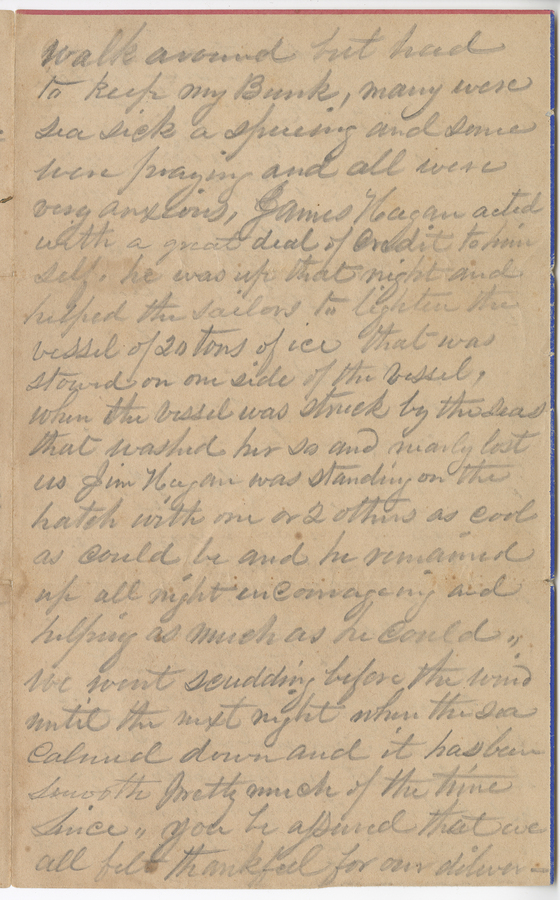 walk around but had
to keep my Bunk, many were
sea sick a spueing and some
were praying and all were
very anxious, James Hagan acted
with a great deal of Credit to him
self. he was up that night and
helped the sailors to lighten the
vessel of 20 tons of ice that was
stowed on one side of the vessel,
when the vessel was struck by the seas
that washed her so and nearly lost
us Jim Hagan was standing on the
hatch with one or 2 others as cool
as could be and he remained
up all night encourageing and
helping as much as he could "
we went scudding before the wind
until the next night when the sea
Calmed down and it has been
smooth Pretty much of the time
Since " you be assured that we
all felt thankful for our deliver-